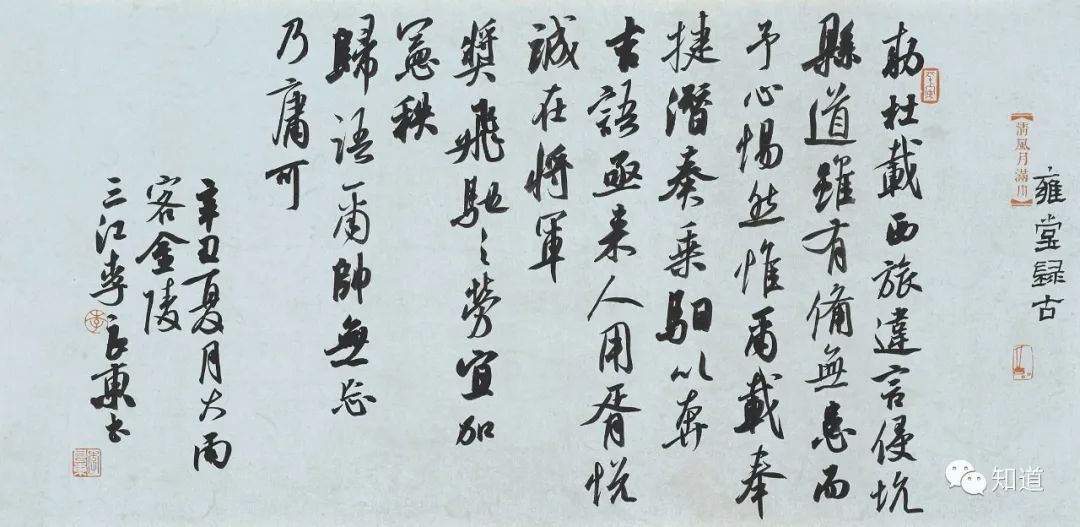 雍堂録古
【清風月滿川】
勅杜載西旅違言侵坑
縣道雖有備無患而
予心惕然惟爾載奉
捷潛奏乘馹以奔
吉語亟来人用胥悦
誠在將軍
奬飛馳之勞宜加
憲秩
歸語爾帥無忘
乃庸可
辛丑夏月大雨
客金陵
三江李良東书
李
知道